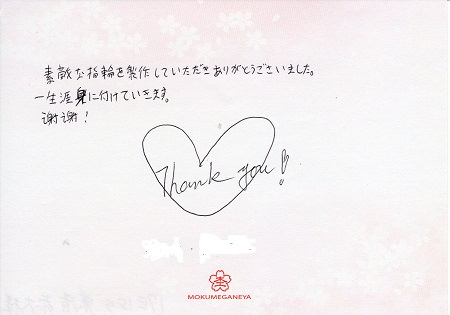 素敵な指輪を製作していただきありがとうございました。
一生涯身に付けていきます。
谢谢！
Thank you!
MOKUMEGANEYA